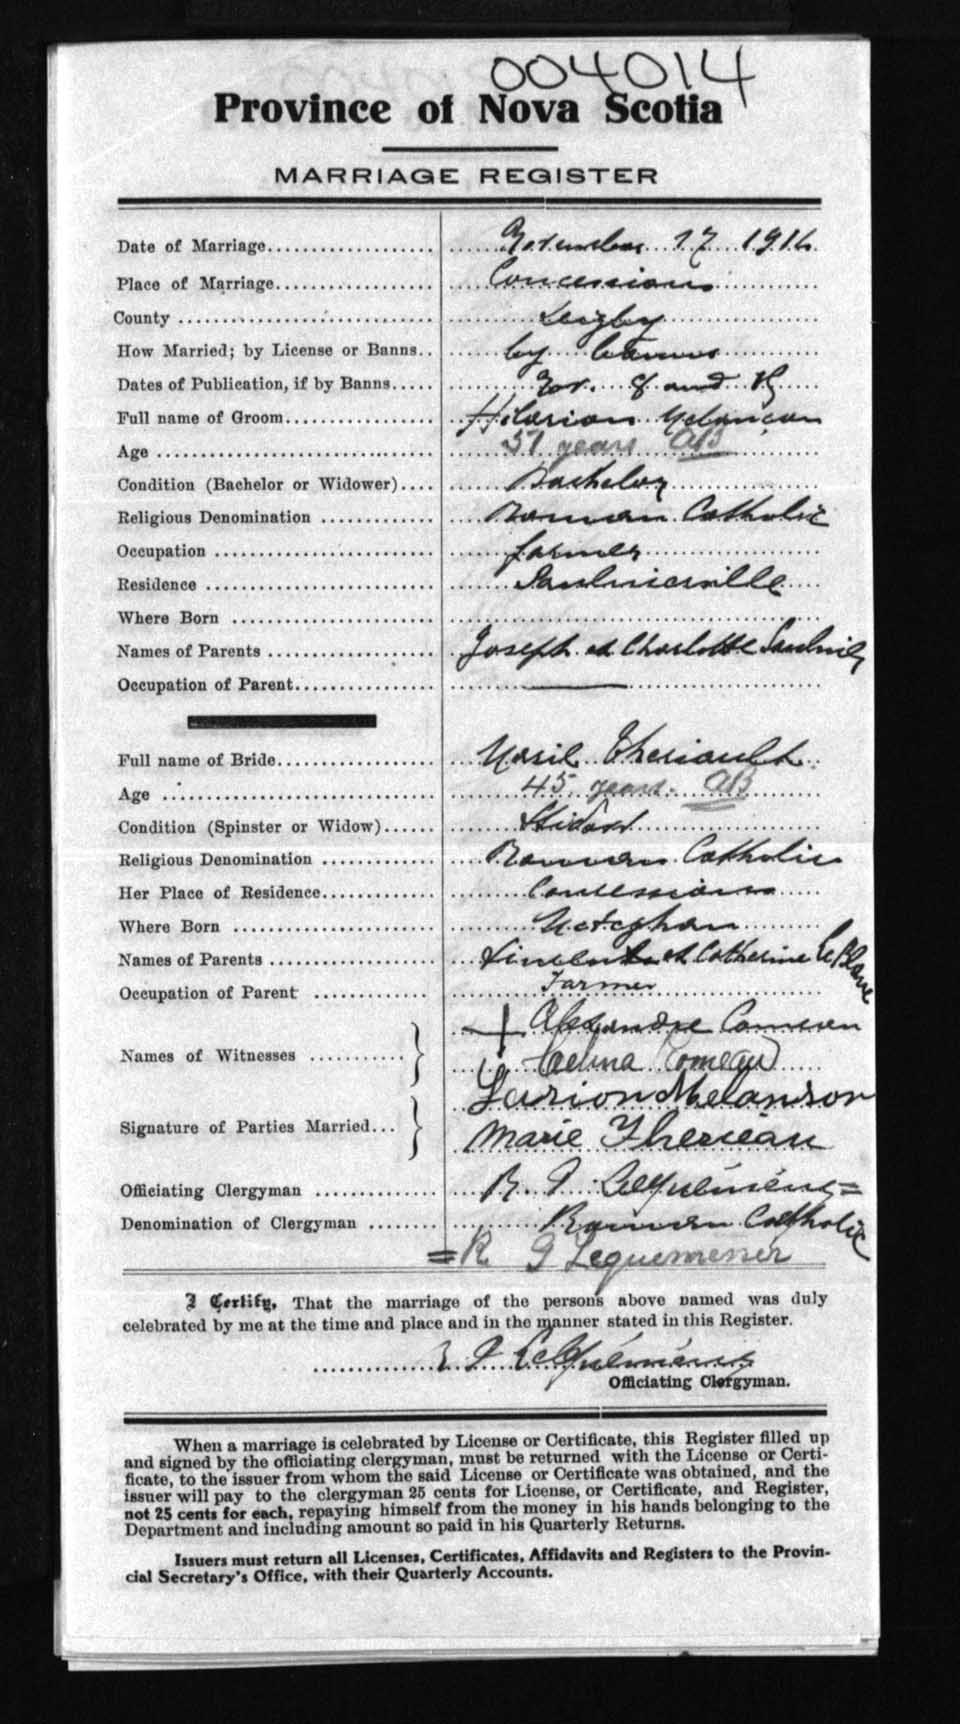 004014
Province of Nova Scotia
MARRIAGE REGISTER
Date of Marriage................... November 17 191
Place of Marriage.................. Concessions
County .............................. Digby
How Married; by License or Banns.. by banns
Dates of Publication, if by Banns..... Nov. 8 and
Full name of Groom.................. Hilarion Melançon
Age ................................. 57 years AB
Condition (Bachelor or Widower).... Bachelor
Religious Denomination ............. Roman Catholic
Occupation ......................... farmer
Residence .......................... Saulnierville
Where Born .........................
Names of Parents ................... Joseph et Charlotte Saulnier
Occupation of Parent................ —
Full name of Bride.................. Marie Theriault
Age ................................ 45 years. AB
Condition (Spinster or Widow)...... Widow
Religious Denomination ............. Roman Catholic
Her Place of Residence............. Concessions
Where Born ......................... Meteghan
Names of Parents ................... et Catherine LeBlanc
Occupation of Parent ............... Farmer
+ Alexandre Comeau
Names of Witnesses ...........
Celina Comeau
Larion Melanson
Signature of Parties Married...
Marie Theriau
Officiating Clergyman .............. =
Denomination of Clergyman ........ Roman Catholic
= R.
I Certify, That the marriage of the persons above named was duly
celebrated by me at the time and place and in the manner stated in this Register.
Officiating Clergyman.
When a marriage is celebrated by License or Certificate, this Register filled up
and signed by the officiating clergyman, must be returned with the License or Certi-
ficate, to the issuer from whom the said License or Certificate was obtained, and the
issuer will pay to the clergyman 25 cents for License, or Certificate, and Register,
not 25 cents for each, repaying himself from the money in his hands belonging to the
Department and including amount so paid in his Quarterly Returns.
Issuers must return all Licenses, Certificates, Affidavits and Registers to the Provin-
cial Secretary's Office, with their Quarterly Accounts.